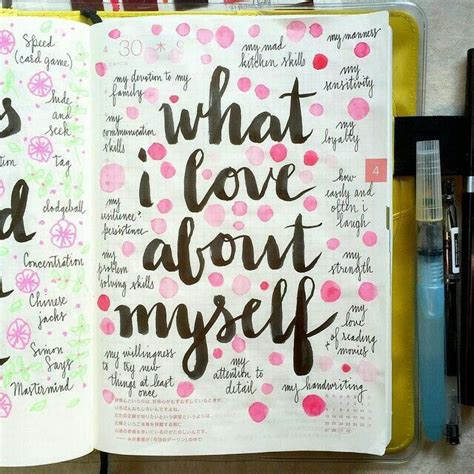 Speed
(card game)
hide
and
seek
tag
dodgeball
Concentration
Chinese
jacks
Simon
Says
Mastermind
s
d
4 30 木
what
i love
about
myself
my devotion to my
family
my
communication
skills
my
resilience +
persistence
my
problem
solving skills
my willingness
to try new
things at least
once
my mad
kitchen skills
my manners
my
sensitivity
my
loyalty
how
easily and
often i
laugh
my
strength
my
love
of reading
+
movies
my
attention to
detail
my handwriting
4